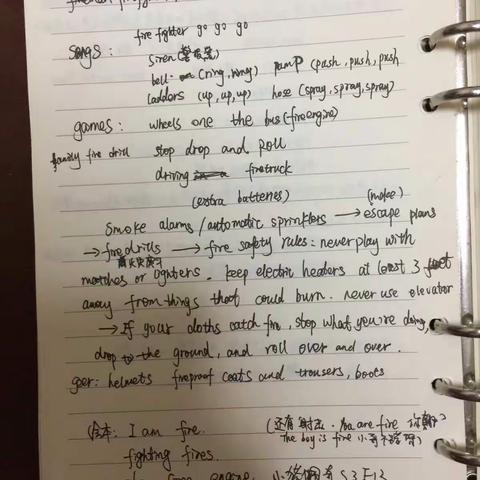 fire fighter go go go
songs: siren
bell (ring, ring) pump (push, push, push
Ladders (up, up, up) hose (spray, spray, spray)
games: wheels one the bus (fire engine)
family fire drill stop drop and Roll
driving firetruck
(extra batteries) (make)
Smoke alarms / automatic sprinklers → escape plans
→ fire drills → fire safety rules: never play with
matches or lighters. keep electric heaters at least 3 feet
away from things that could burn. never use elevator
→ If your cloths catch fire, stop what you're doing,
drop to the ground, and roll over and over.
gear: helmets fireproof coats and trousers, boots
绘本: I am fire. (还有
fighting fires. The boy is fire 小哥
fire engine. 小猪佩奇 S3E13